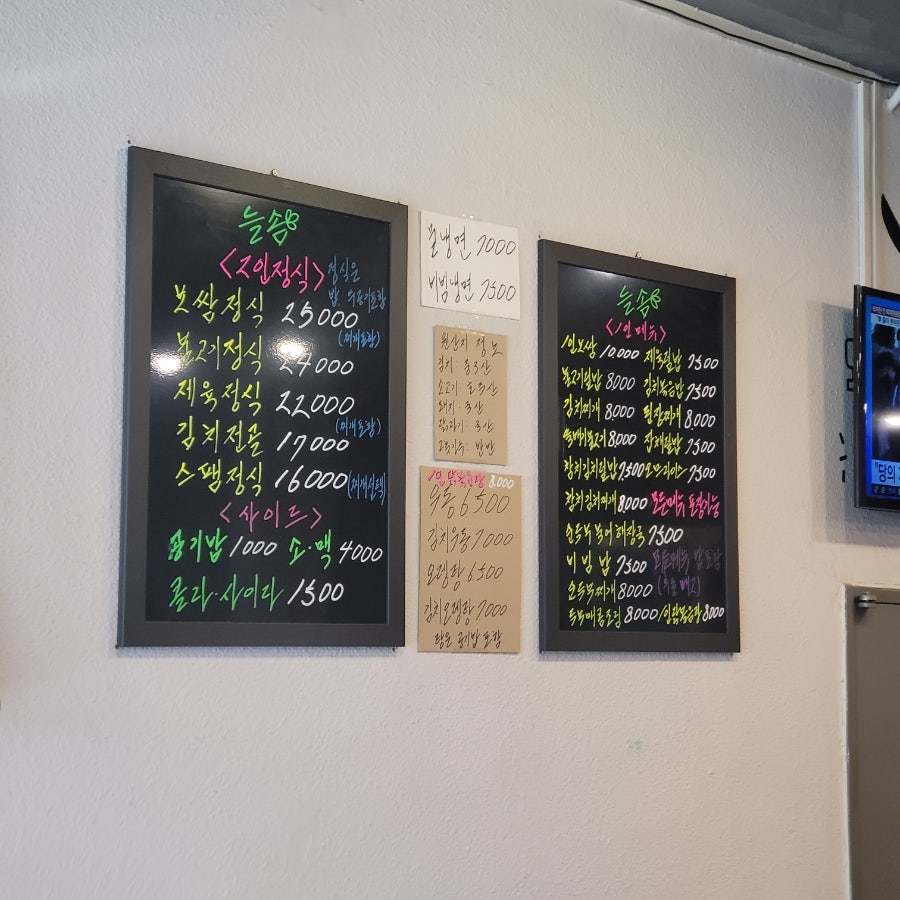 늘솜
<2인정식> 정식은
밥, 뚝공기포함
보쌈정식 25000
불고기정식 (찌개포함) 24000
제육정식 22000
김치전골 17000 (찌개포함)
스팸정식 16000 (찌개선택)
<사이드>
공기밥 1000 소·맥 4000
콜라·사이다 1500
물냉면 7000
비빔냉면 7500
원산지 정보
김치:
소고기:
돼지:
닭고기:
고춧가루:
1인 닭볶음탕 8.000
우동 6500
김치우동 7000
오뎅탕 6500
김치오뎅탕 7000
탕은 공기밥 포함
늘솜
<1인메뉴>
1인보쌈 10,000 제육덮밥 7500
불고기덮밥 8000 김치볶음밥 7500
김치찌개 8000 된장찌개 8000
뚝배기불고기 8000 잡채덮밥 7500
참치김치덮밥 7500 오므라이스 7500
참치김치찌개 8000 모든메뉴 포장가능
순두부 북어해장국 7500
비빔밥 7500 모든메뉴 밥포함
순두부찌개 8000
두부매콤조림 8000 / 1인닭볶음탕 8000